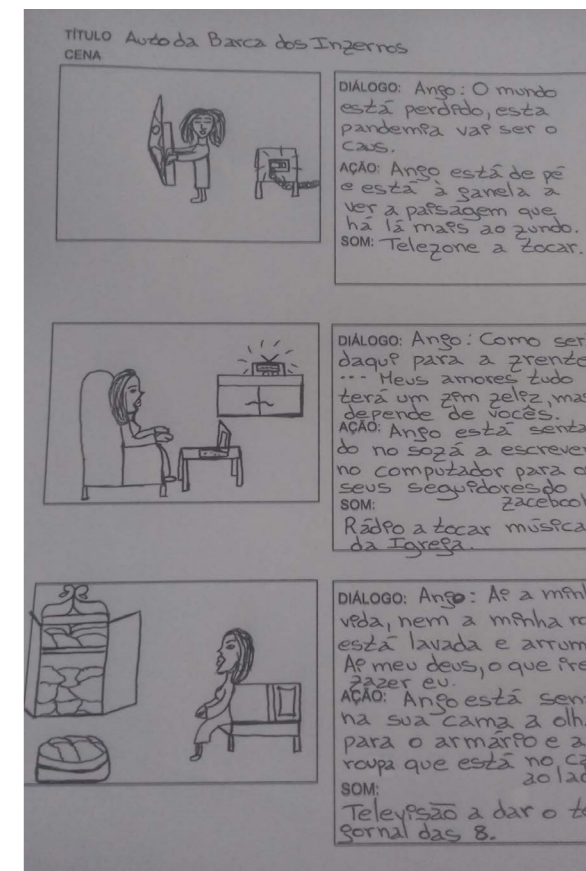 TÍTULO Auto da Barca dos Infernos
CENA
DIÁLOGO: Anjo: O mundo
está perdido, esta
pandemia vai ser o
caus.
AÇÃO: Anjo está de pé
e está à janela a
ver a paisagem que
há lá mais ao fundo.
SOM: Telefone a tocar.
DIÁLOGO: Anjo: Como ser
daqui para a frente
... Meus amores tudo
terá um fim feliz, mas
depende de vocês.
AÇÃO: Anjo está senta
do no sofá a escrever
no computador para o
seus seguidores do
facebook
SOM:
Rádio a tocar música
da Igreja.
DIÁLOGO: Anjo: Ai a minh
vida, nem a minha ro
está lavada e arrum
Ai meu deus, o que ire
fazer eu.
AÇÃO: Anjo está sen
na sua cama a olh
para o armário e a
roupa que está no
ao lad
SOM:
Televisão a dar o
jornal das 8.